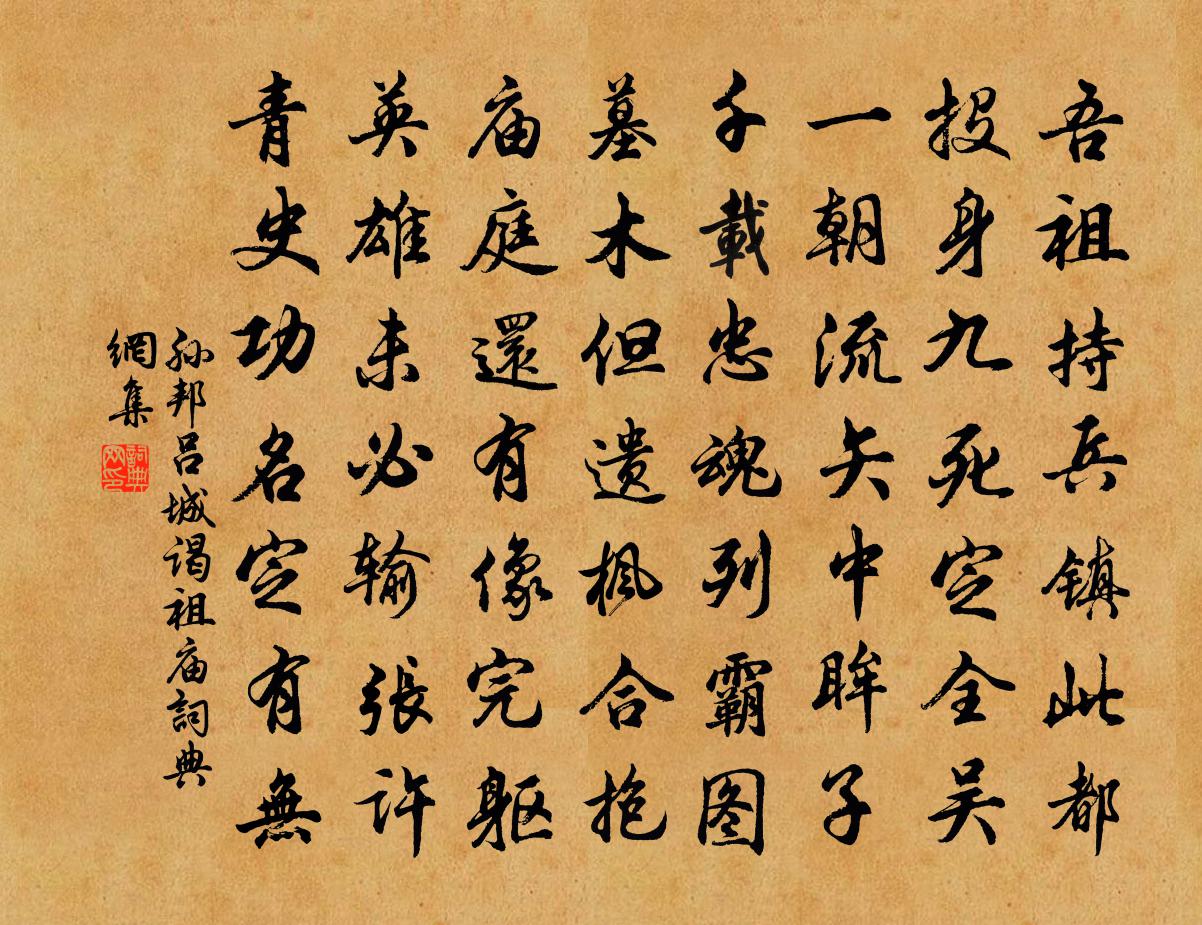 吾祖持兵镇此都
投身九死定全吴
一朝流矢中眸子
千載忠魂列霸图
墓木但遗枫合抱
庙庭還有像完躯
英雄未必输張许
青史功名定有無
孙邦吕城谒祖庙詞典
網集
詞典
网印